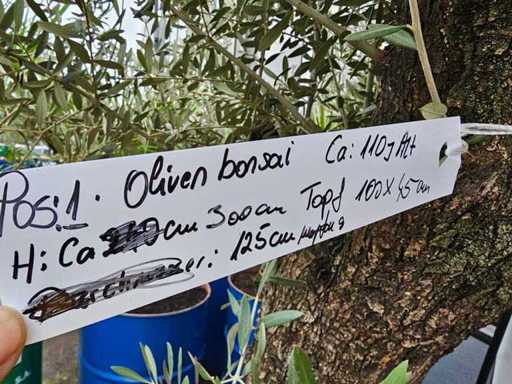 Pos:1. Olivenbonsai Ca: 110j Alt
H: Ca cm 300cm Topf 100x45cm
Durchmesser: 125cm